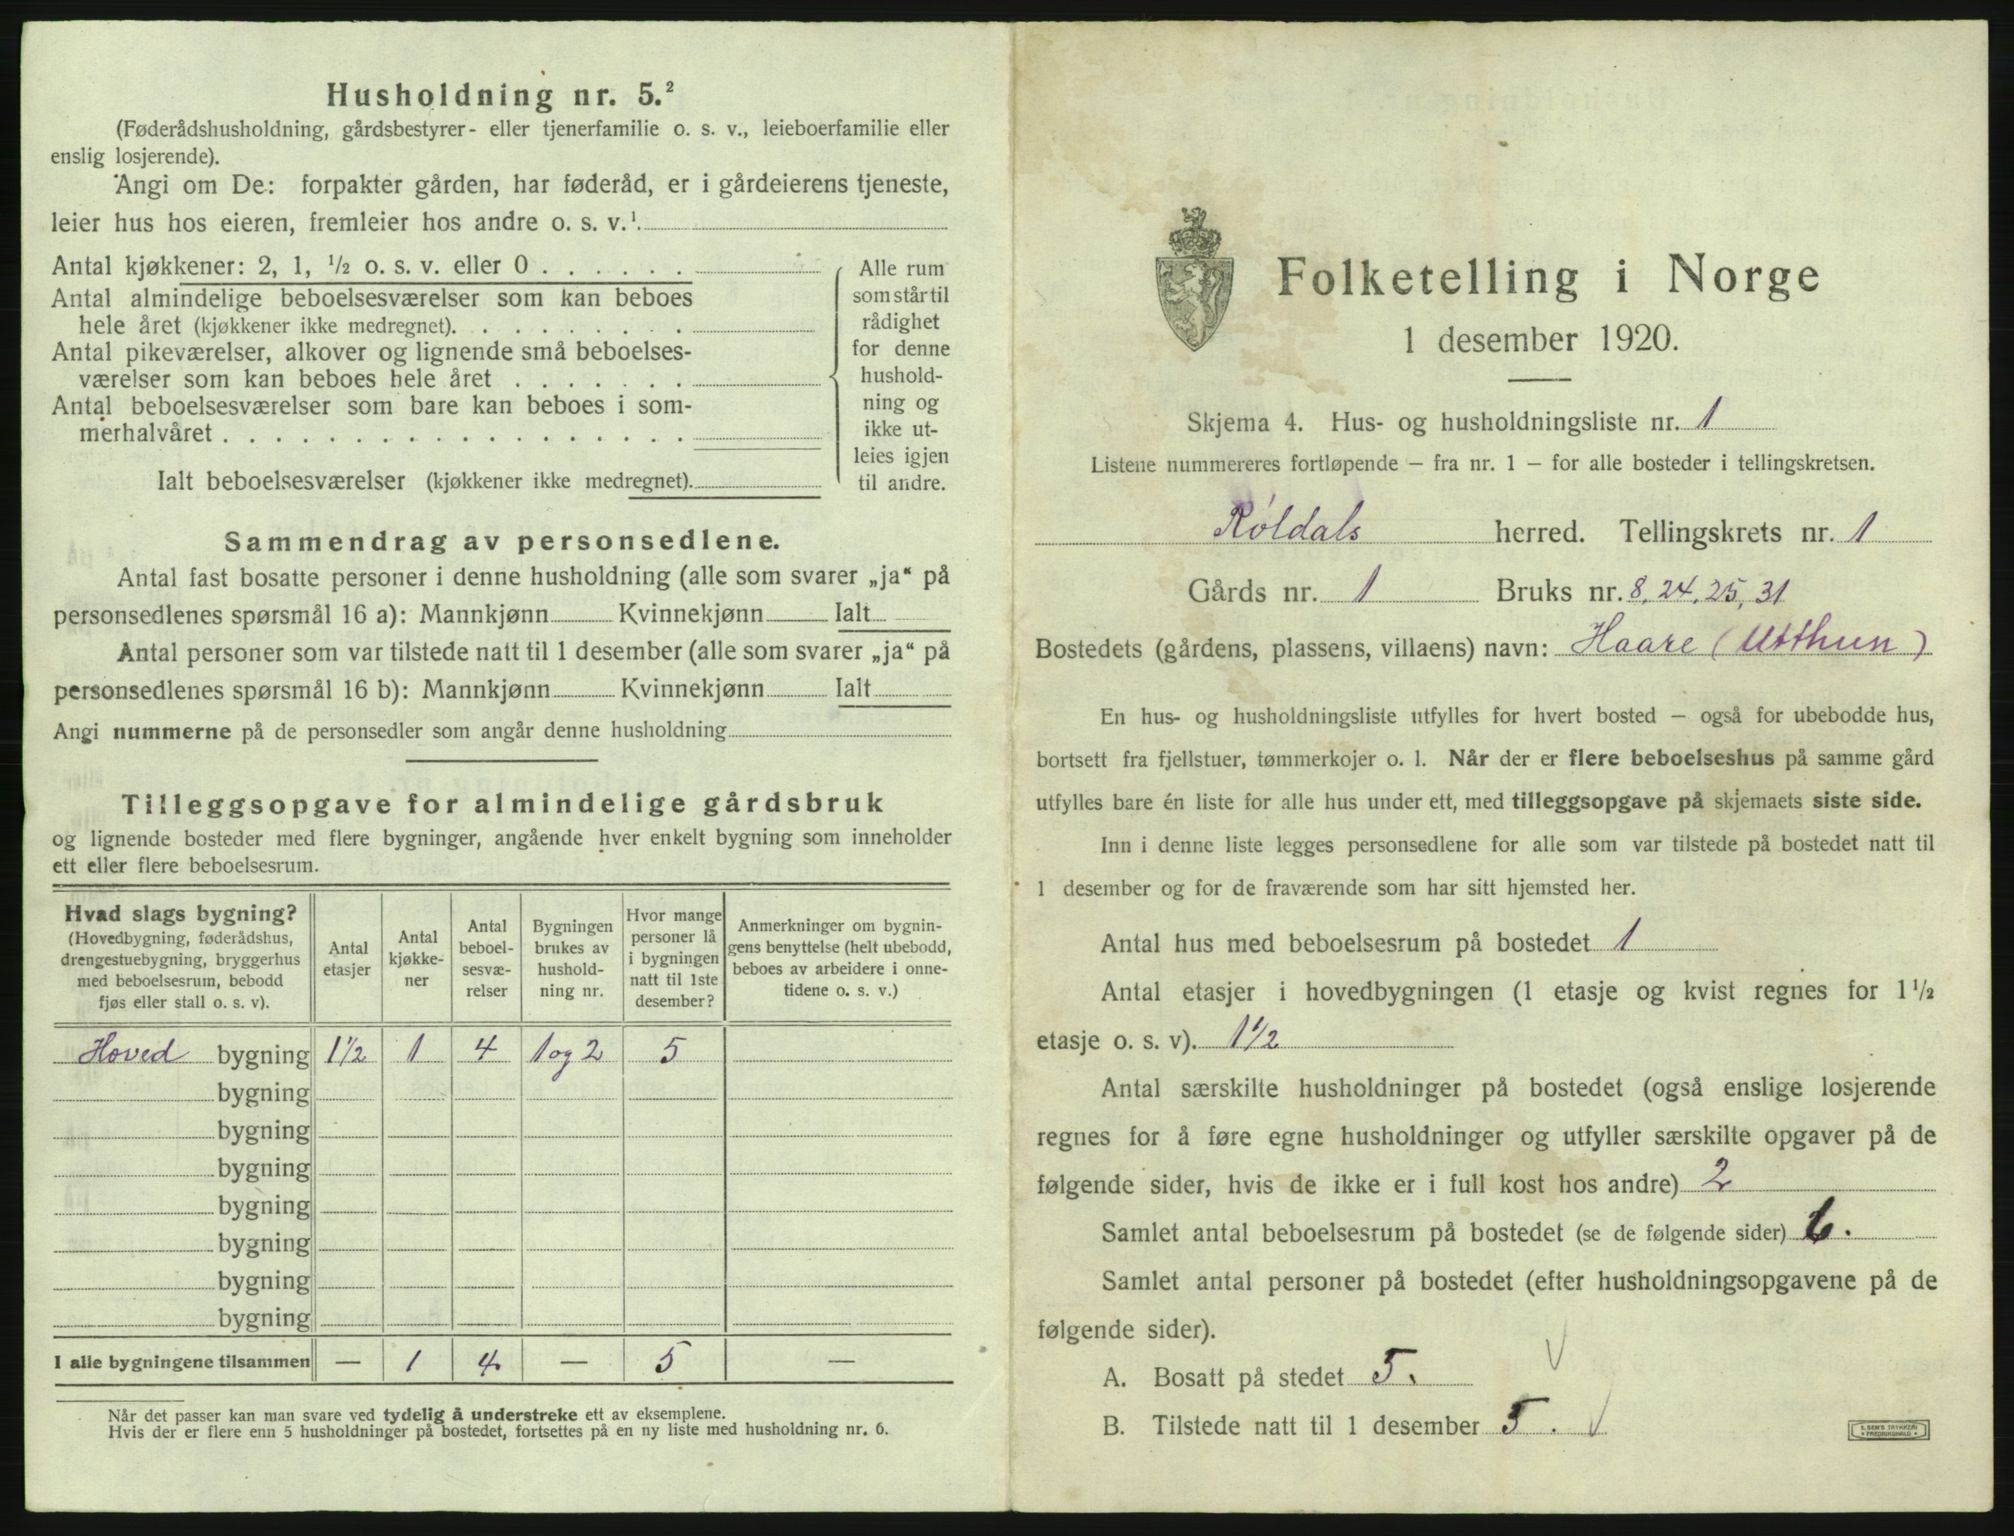 Husholdning nr. 5.²
(Føderådshusholdning, gårdsbestyrer- eller tjenerfamilie o. s. v., leieboerfamilie eller
enslig losjerende).
Angi om De: forpakter gården, har føderåd, er i gårdeierens tjeneste,
leier hus hos eieren, fremleier hos andre o. s. v.¹
Antal kjøkkener: 2, 1, ½ o. s. v. eller 0 . . . . . .
Antal almindelige beboelsesværelser som kan beboes
hele året (kjøkkener ikke medregnet). . . . . . . . .
Antal pikeværelser, alkover og lignende små beboelses-
værelser som kan beboes hele året . . . . . . .
Antal beboelsesværelser som bare kan beboes i som-
merhalvåret . . . . . . . . . . . . . . . . . .
Ialt beboelsesværelser (kjøkkener ikke medregnet).
Alle rum
som står til
rådighet
for denne
hushold-
ning og
ikke ut-
leies igjen
til andre.
Sammendrag av personsedlene.
Antal fast bosatte personer i denne husholdning (alle som svarer „ja“ på
personsedlenes spørsmål 16 a): Mannkjønn Kvinnekjønn Ialt
Antal personer som var tilstede natt til 1 desember (alle som svarer „ja“ på
personsedlenes spørsmål 16 b): Mannkjønn Kvinnekjønn Ialt
Angi nummerne på de personsedler som angår denne husholdning
Tilleggsopgave for almindelige gårdsbruk
og lignende bosteder med flere bygninger, angående hver enkelt bygning som inneholder
ett eller flere beboelsesrum.
Hvad slags bygning?
(Hovedbygning, føderådshus,
drengestuebygning, bryggerhus
med beboelsesrum, bebodd
fjøs eller stall o. s. v).
Antal
etasjer
Antal
kjøkke-
ner
Antal
beboel-
sesvæ-
relser
Bygningen
brukes av
hushold-
ning nr.
Hvor mange
personer lå
i bygningen
natt til 1ste
desember?
Anmerkninger om bygnin-
gens benyttelse (helt ubebodd,
beboes av arbeidere i onne-
tidene o. s. v.)
Hoved bygning 1½ 1 4 1 og 2 5
bygning
bygning
bygning
bygning
bygning
bygning
bygning
I alle bygningene tilsammen — 1 4 — 5 —
Når det passer kan man svare ved tydelig å understreke ett av eksemplene.
Hvis der er flere enn 5 husholdninger på bostedet, fortsettes på en ny liste med husholdning nr. 6.
Folketelling i Norge
1 desember 1920.
Skjema 4. Hus- og husholdningsliste nr. 1
Listene nummereres fortløpende – fra nr. 1 – for alle bosteder i tellingskretsen.
Røldals herred. Tellingskrets nr. 1
Gårds nr. 1 Bruks nr. 8, 24, 25, 31
Bostedets (gårdens, plassens, villaens) navn: Haare (Utthun)
En hus- og husholdningsliste utfylles for hvert bosted – også for ubebodde hus,
bortsett fra fjellstuer, tømmerkojer o. l. Når der er flere beboelseshus på samme gård
utfylles bare én liste for alle hus under ett, med tilleggsopgave på skjemaets siste side.
Inn i denne liste legges personsedlene for alle som var tilstede på bostedet natt til
1 desember og for de fraværende som har sitt hjemsted her.
Antal hus med beboelsesrum på bostedet 1
Antal etasjer i hovedbygningen (1 etasje og kvist regnes for 1½
etasje o. s. v). 1½
Antal særskilte husholdninger på bostedet (også enslige losjerende
regnes for å føre egne husholdninger og utfyller særskilte opgaver på de
følgende sider, hvis de ikke er i full kost hos andre) 2
Samlet antal beboelsesrum på bostedet (se de følgende sider) 6.
Samlet antal personer på bostedet (efter husholdningsopgavene på de
følgende sider).
A. Bosatt på stedet 5.
B. Tilstede natt til 1 desember 5.